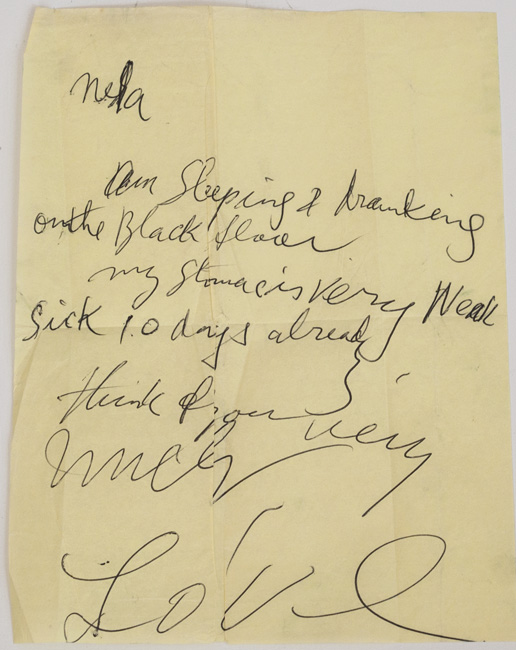 Nela
Am Sleeping & dranking
on the Black floor
my stomac is very Weak
Sick 10 days already
think of you very
much
Love